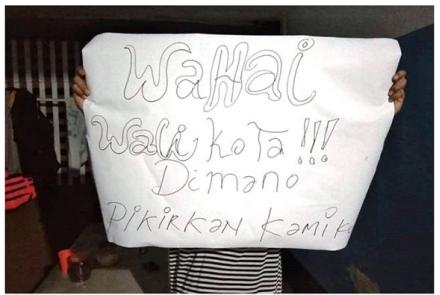 WaHai
Wali kota !!!
Dimano
PIKIRKAN KAMI